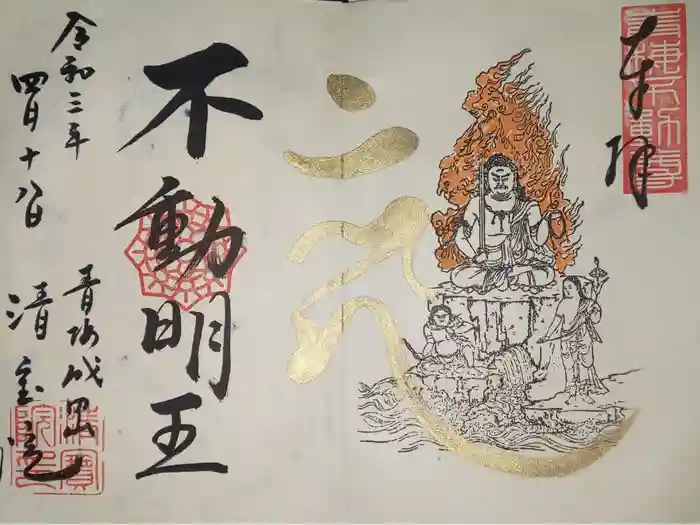 奉拝
不動明王
令和三年
四月十八日
青梅成田山
清宝院
清寶院印